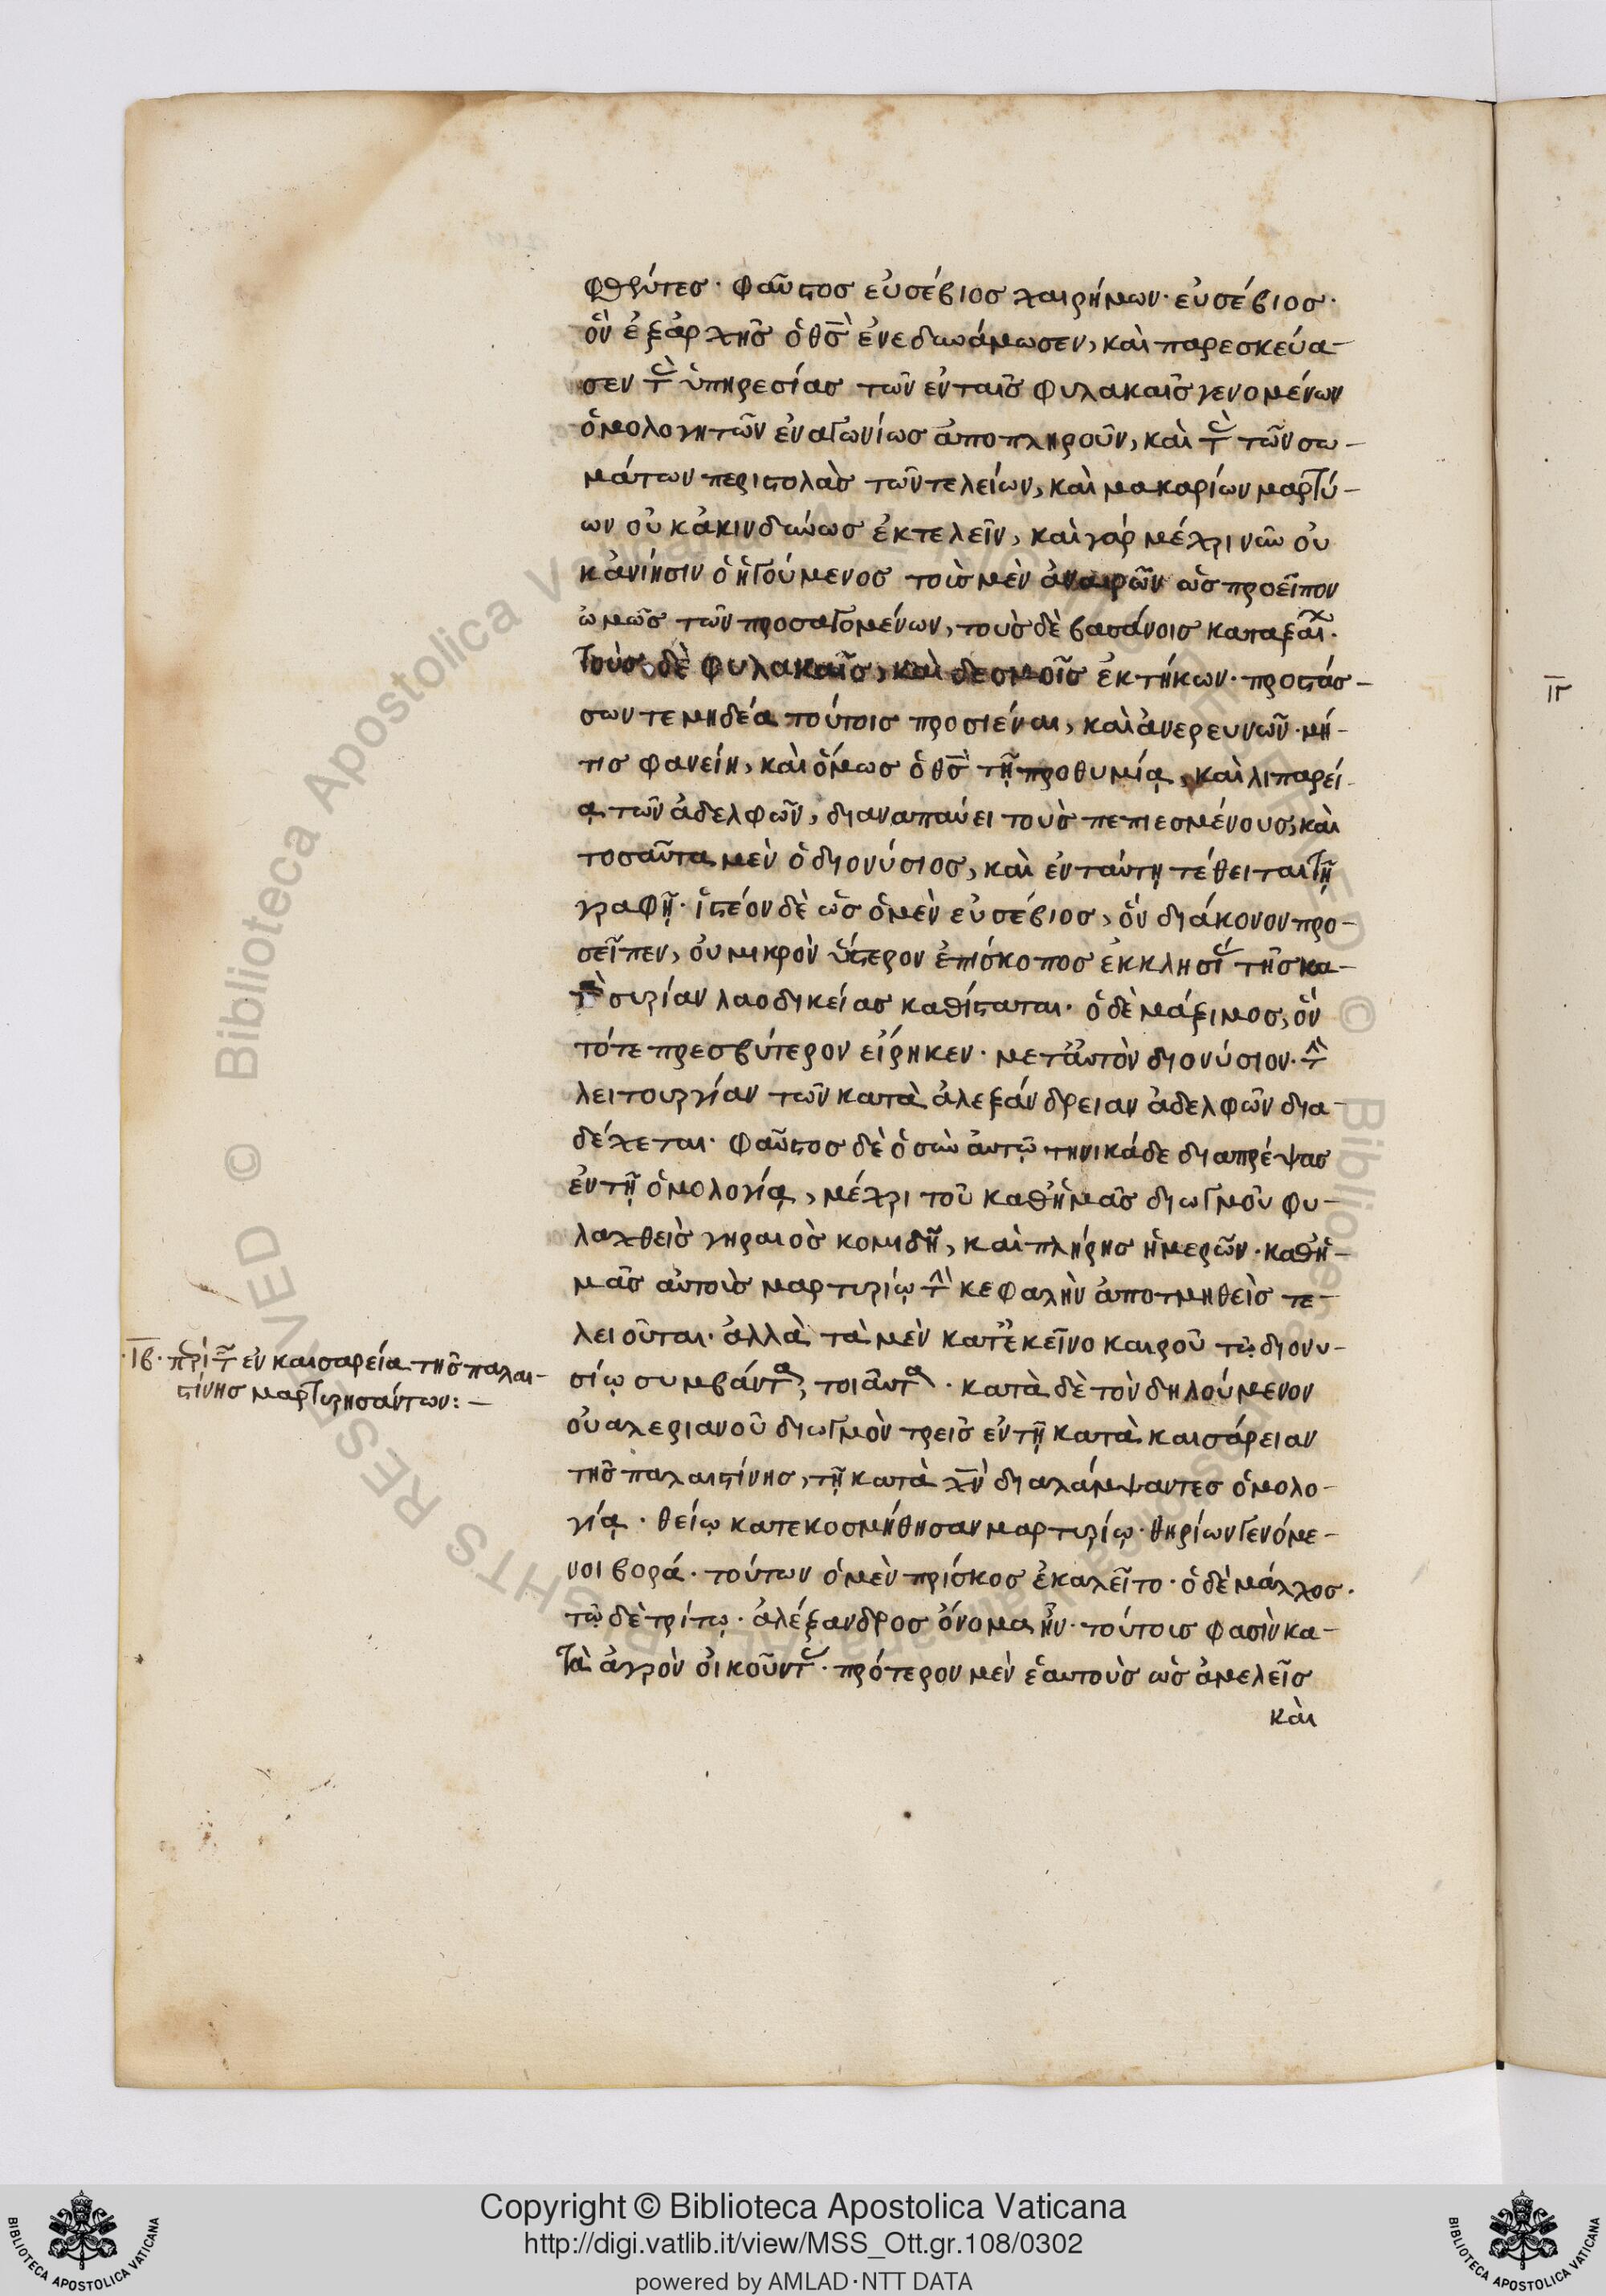 φθέντες· φαῦστος εὐσέβιος χαιρήμων· εὐσέβιος·
ὃν ἐξἀρχῆς ὁ θς ἐνεδυνάμωσεν, καὶ παρεσκεύα-
σεν τὰς ὑπηρεσίας τῶν ἐν ταῖς φυλακαῖς γενομένων
ὁμολογητῶν ἐναγωνίως ἀποπληροῦν, καὶ τὰς τῶν σω-
μάτων περιστολὰς τῶν τελείων, καὶ μακαρίων μαρτύ-
ων οὐκ ἀκινδύνως ἐκτελεῖν, καὶ γὰρ μέχρι νῦν οὐ
κἀνίησιν ὁ ἡγούμενος τοὺς μὲν ἀναιρῶν ὡς προεῖπον
ὠμῶς τῶν προσαγομένων, τοὺς δὲ βασάνοις καταξαί·
τοὺς δὲ φυλακαῖς, καὶ δεσμοῖς ἐκτήκων· προστάσ-
σων τε μηδένα τούτοις προσιέναι, καὶ ἀνερευνῶν· μή-
τις φανείη, καὶ ὅμως ὁ θς τῇ προθυμίᾳ, καὶ λιπαρεί-
ᾳ τῶν ἀδελφῶν, διαναπαύει τοὺς πεπιεσμένους, καὶ
τοσαῦτα μὲν ὁ διονύσιος, καὶ ἐν ταύτῃ τέθειται τῇ
γραφῇ· ἰστέον δὲ ὡς ὁ μὲν εὐσέβιος, ὃν διάκονον προ-
σεῖπεν, οὐ μικρὸν ὕστερον ἐπίσκοπος ἐκκλησίας τῆς κα-
τὰ συρίαν λαοδικείας καθίσταται· ὁ δὲ μάξιμος, ὃν
τότε πρεσβύτερον εἴρηκεν· μετ' αὐτὸν διονύσιον· τὴν
λειτουργίαν τῶν κατὰ ἀλεξάνδρειαν ἀδελφῶν δια-
δέχεται· φαῦστος δὲ ὁ σὺν αὐτῷ τηνικάδε διαπρέψας
ἐν τῇ ὁμολογίᾳ, μέχρι τοῦ καθ' ἡμᾶς διωγμοῦ φυ-
λαχθεὶς γηραιὸς κομιδῇ, καὶ πλήρης ἡμερῶν· καθ' ἡ-
μᾶς αὐτοὺς μαρτυρίῳ τὴν κεφαλὴν ἀποτμηθεὶς τε-
λειοῦται· ἀλλὰ τὰ μὲν κατ' ἐκεῖνο καιροῦ τῷ διονυ-
σίῳ συμβάντα, τοιαῦτα· κατὰ δὲ τὸν δηλούμενον
οὐαλεριανοῦ διωγμὸν τρεῖς ἐν τῇ κατὰ καισάρειαν
τῆς παλαιστίνης, τῇ κατὰ χν διαλάμψαντες ὁμολο-
γίᾳ· θείῳ κατεκοσμήθησαν μαρτυρίῳ· θηρίων γενόμε-
νοι βορά· τούτων ὁ μὲν πρίσκος ἐκαλεῖτο· ὁ δὲ μάλχος·
τῷ δὲ τρίτῳ· ἀλέξανδρος ὄνομα ἦν· τούτοις φασὶν κα-
τὰ ἀγρὸν οἰκοῦντας· πρότερον μὲν ἑαυτοὺς ὡς ἀμελεῖς
καὶ
·ιβ· περὶ τῶν ἐν καισαρεία τῆς παλαι-
στίνης μαρτυρησάντων:-
Copyright © Biblioteca Apostolica Vaticana
http://digi.vatlib.it/view/MSS_Ott.gr.108/0302
powered by AMLAD·NTT DATA
BIBLIOTECA APOSTOLICA VATICANA
BIBLIOTECA APOSTOLICA VATICANA